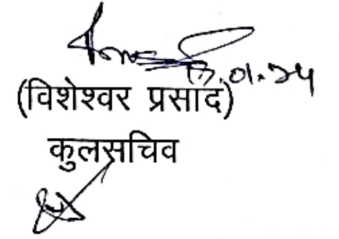 17.01.24
(विशेश्वर प्रसाद)
कुलसचिव